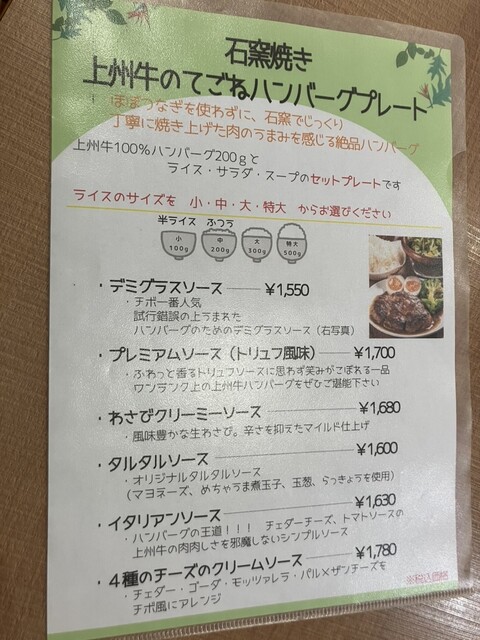 石窯焼き
上州牛のてごねハンバーグプレート
ほぼつなぎを使わずに、石窯でじっくり
丁寧に焼き上げた肉のうまみを感じる絶品ハンバーグ
上州牛100%ハンバーグ200gと
ライス・サラダ・スープのセットプレートです
ライスのサイズを 小・中・大・特大 からお選びください
半ライス ふつう
小 中 大 特大
100g 200g 300g 500g
・デミグラスソース ¥1,550
・チポ一番人気
試行錯誤の上うまれた
ハンバーグのためのデミグラスソース（右写真）
・プレミアムソース（トリュフ風味） ¥1,700
・ふわっと香るトリュフソースに思わず笑みがこぼれる一品
ワンランク上の上州牛ハンバーグをぜひご堪能下さい
・わさびクリーミーソース ¥1,680
・風味豊かな生わさび。辛さを抑えたマイルド仕上げ
・タルタルソース ¥1,600
・オリジナルタルタルソース
（マヨネーズ、めちゃうま煮玉子、玉葱、らっきょうを使用）
・イタリアンソース ¥1,630
・ハンバーグの王道！！！ チェダーチーズ、トマトソースの
上州牛の肉肉しさを邪魔しないシンプルソース
・4種のチーズのクリームソース ¥1,780
・チェダー・ゴーダ・モッツァレラ・パルメザンチーズを
チポ風にアレンジ
※税込価格